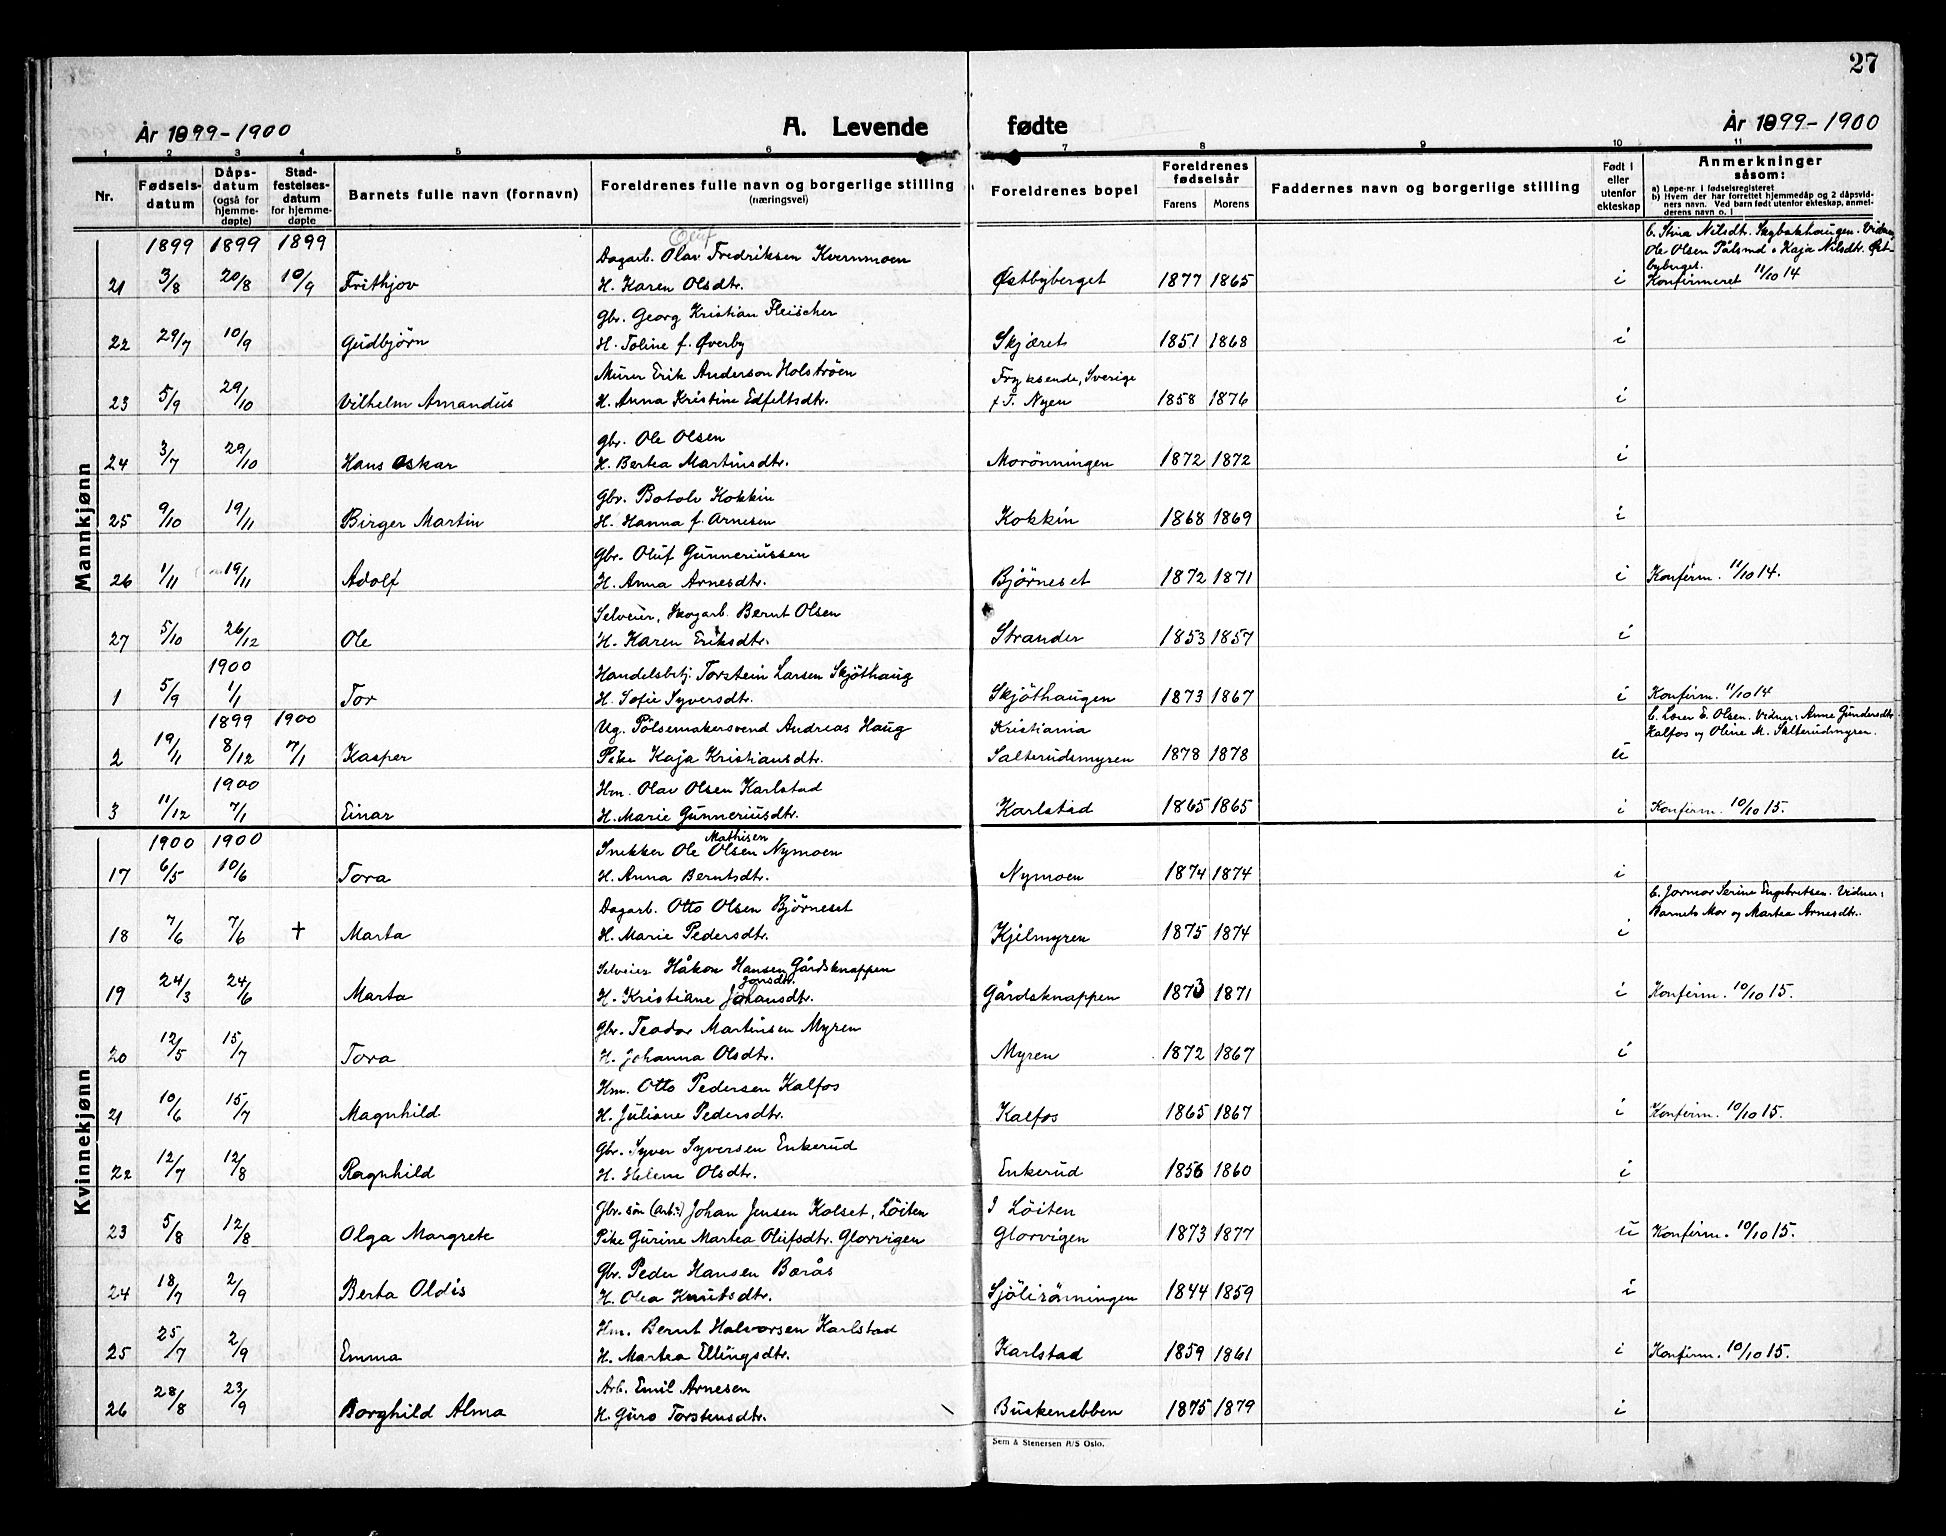 27
År 1899-1900
A. Levende fødte
År 1899-1900
1 2 3 4 5 6 7 8 9 10 11
Nr.
Fødsels-
datum
Dåps-
datum
(også for
hjemme-
døpte)
Stad-
festelses-
datum
for hjemme-
døpte
Barnets fulle navn (fornavn)
Foreldrenes fulle navn og borgerlige stilling
(næringsvei)
Foreldrenes bopel
Foreldrenes
fødselsår
Farens Morens
Faddernes navn og borgerlige stilling
Født i
eller
utenfor
ekteskap
Anmerkninger
såsom:
a) Løpe-nr. i fødselsregisteret
b) Hvem der har forrettet hjemmedåp og 2 dåpsvid-
ners navn. Ved barn født utenfor ekteskap, anmel-
derens navn o. l.
Mannkjønn
1899 1899 1899
Oluf
Dagarb. Olav Fredriksen Kvernmoen
b. Stina Nilsdt. Skybakhaugen. Vidner
Ole Olsen Pålsmd. o Kaja Nilsdtr. Øst-
byberget.
21 3/8 20/8 10/9 Frithjov H. Karen Olsdtr. Østbyberget 1877 1865 i Konfirmeret 11/10 14
Gbr. Georg Kristian Fleischer
22 29/7 10/9 Gudbjørn H. Toline f. Øverby Skjæret 1851 1868 i
Murer Erik Anderson Holströen Fryksende, Sverige
23 5/9 29/10 Vilhelm Amandus H. Anna Kristine Edfeltsdtr. f. T. Nyen 1858 1876 i
Gbr. Ole Olsen
24 3/7 29/10 Hans Oskar H. Bertea Martinsdtr. Morönningen 1872 1872 i
Gbr. Botolv Kokkin
25 9/10 19/11 Birger Martin H. Hanna f. Arnesen Kokkin 1868 1869 i
Gbr. Oluf Gunneriussen
26 1/11 19/11 Adolf H. Anna Arnesdtr. Bjørneset 1872 1871 i Konfirm. 11/10 14.
Selveier, Skogarb. Bernt Olsen
27 5/10 26/12 Ole H. Karen Eriksdtr. Strander 1853 1857 i
1900 Handelsbtj. Torstein Larsen Skjöthaug
1 5/9 1/1 Tor H. Sofie Syversdtr. Skjöthaugen 1873 1867 i Konfirm. 11/10 14
1899 1900 Ug. Pölsemakersvend Andreas Haug Kristiania
b. Lærer E. Olsen. Vidner: Anne Gundersdtr.
Kalfos og Oline M. Salterudmyren.
2 19/1 8/12 7/1 Kasper Pike Kaja Kristiansdtr. Salterudsmyren 1878 1878 u
1900 Hm. Olav Olsen Karlstad
3 11/12 7/1 Einar H. Marie Gunneriusdtr. Karlstad 1865 1865 i Konfirm. 10/10 15.
Kvinnekjønn
1900 1900 Mathisen
Snekker Ole Olsen Nymoen
17 6/5 10/6 Tora H. Anna Berntsdtr. Nymoen 1874 1874 i
Dagarb. Otto Olsen Bjørneset
b. Jormor Serine Engebretsen. Vidner:
Barnets Mor og Martea Arnesdtr.
18 7/6 7/6 + Marta H. Marie Pedersdtr. Kjelmyren 1875 1874 i
Selveier Håkon Hansen Gårdsknappen
Jonsdtr.
19 24/3 24/6 Marta H. Kristiane Johansdtr. Gårdsknappen 1873 1871 i Konfirm. 10/10 15.
Gbr. Teodor Martinsen Myren
20 12/5 15/7 Tora H. Johanna Olsdtr. Myren 1872 1867 i
Hm. Otto Pedersen Kalfos
21 10/6 15/7 Magnhild H. Juliane Pedersdtr. Kalfos 1865 1867 i Konfirm. 10/10 15.
Gbr. Syver Syversen Enkerud
22 12/7 12/8 Ragnhild H. Helene Olsdtr. Enkerud 1856 1860 i
Gbr. søn (arb.) Johan Jensen Kolset, Löiten I Löiten
23 5/8 12/8 Olga Margrete Pike Gurine Martea Olufsdtr. Glorvigen Glorvigen 1873 1877 u Konfirm. 10/10 15.
Gbr. Peder Hansen Børås
24 18/7 2/9 Berta Oldis H. Olea Knutsdtr. Sjölirönningen 1844 1859 i
Hm. Bernt Halvorsen Karlstad
25 25/7 2/9 Emma H. Martea Ellingsdtr. Karlstad 1859 1861 i Konfirm. 10/10 15.
Arb. Emil Arnesen
26 28/8 23/9 Borghild Alma H. Guro Torstensdtr. Buskenebben 1875 1879 i
Sem & Stenersen A/S Oslo.